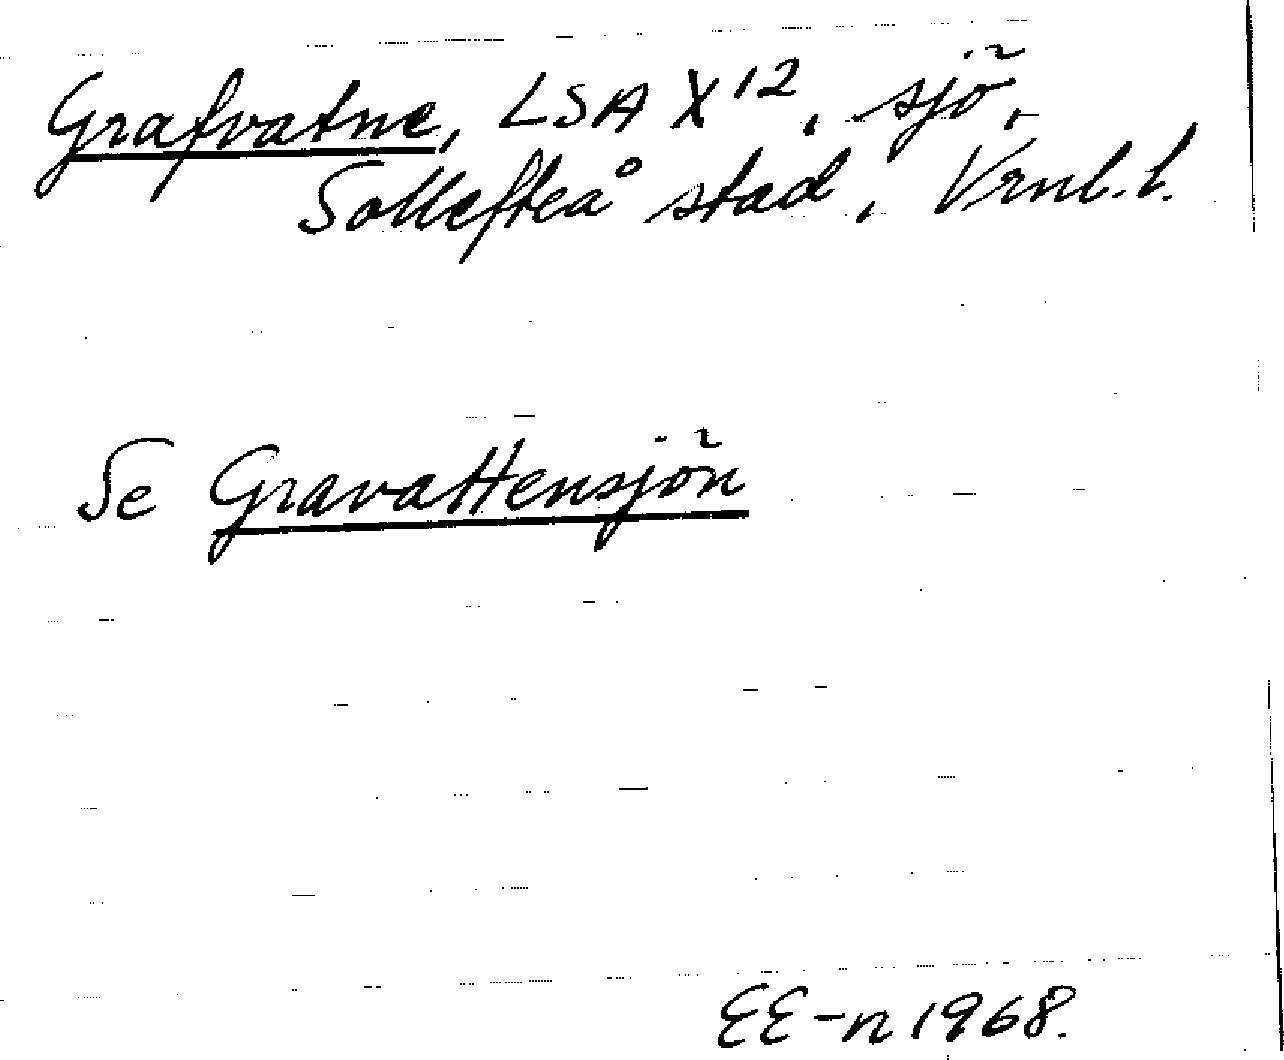 Grafvatne, LSA X¹², sjö,
Sollefteå stad, Vrnl.l.
Se Gravattensjön
EE-n 1968.